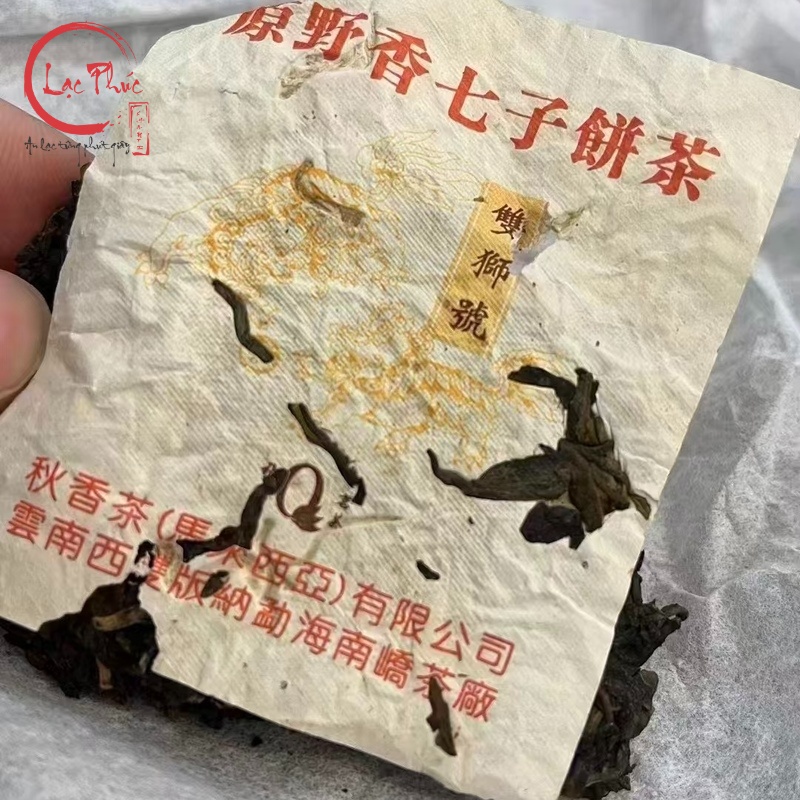 Lạc Phúc
An lạc từng phút giây
原野香七子餅茶
雙獅號
秋香茶(馬來西亞)有限公司
雲南西雙版納勐海南嶠茶廠